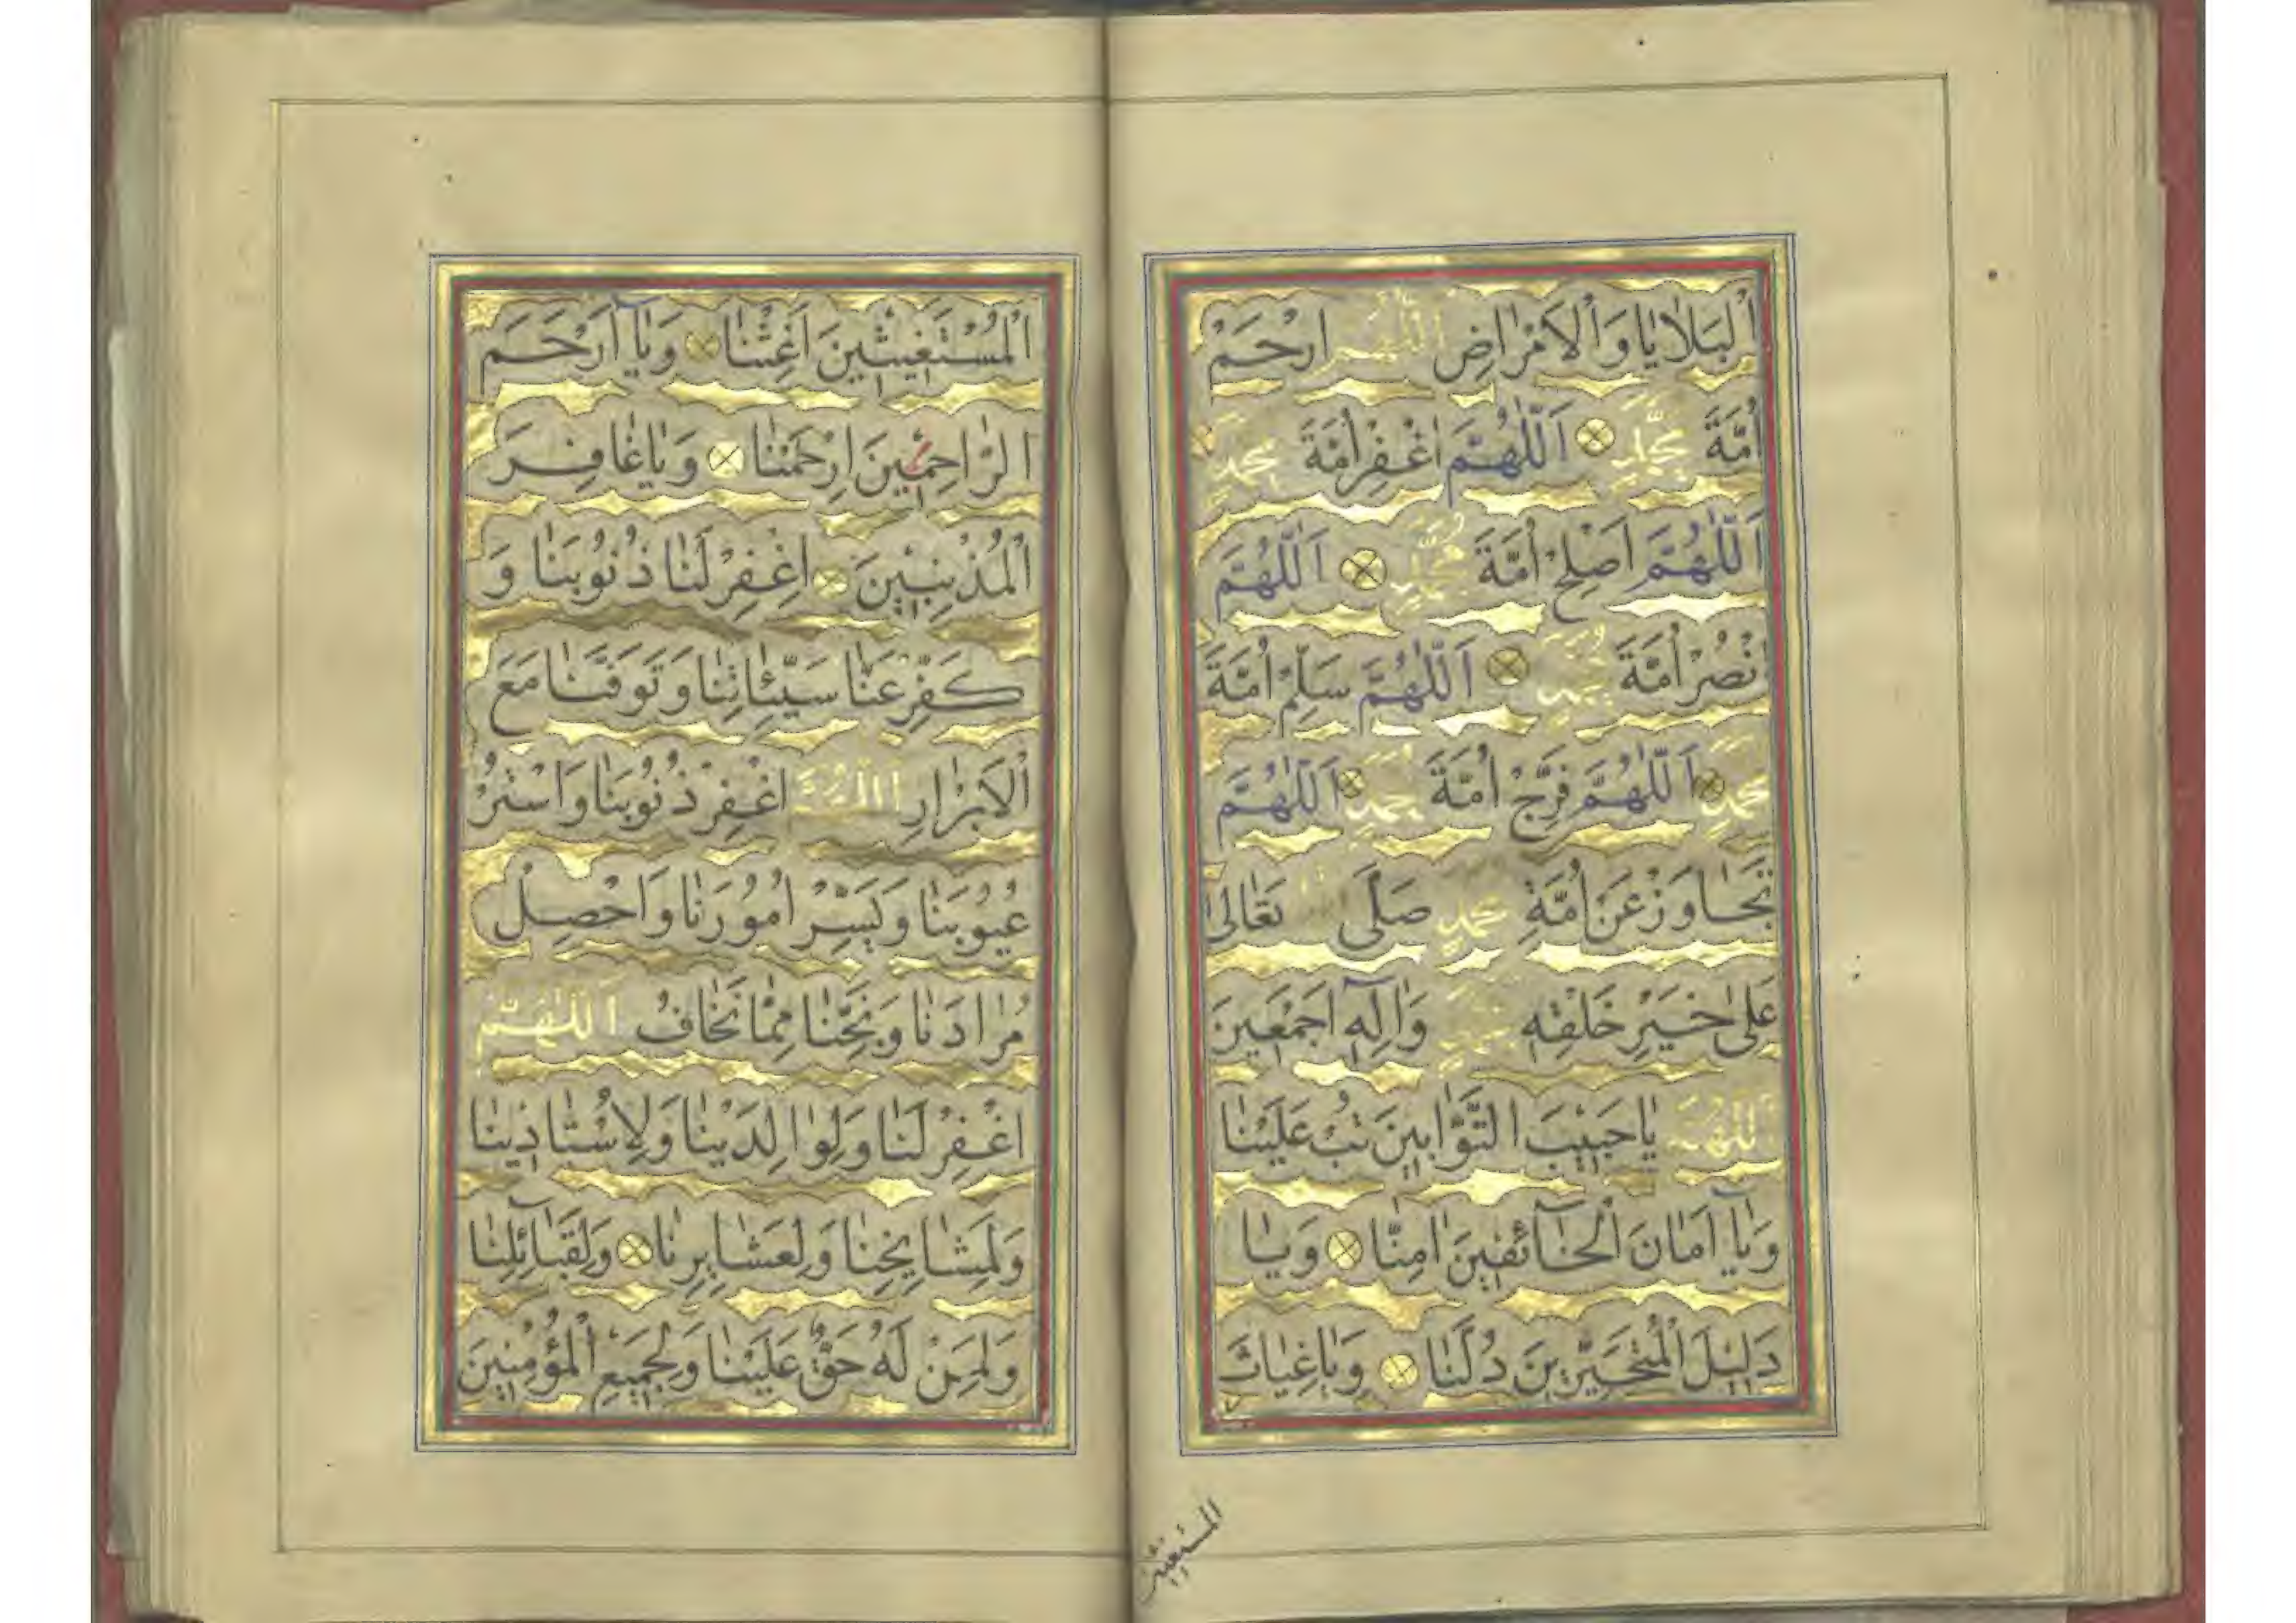 اَلْبَلَايَا وَالْاَمْرَاضِ اَللّٰهُمَّ ارْحَمْ
اُمَّةَ مُحَمَّدٍ اَللّٰهُمَّ اغْفِرْ اُمَّةَ مُحَمَّدٍ
اَللّٰهُمَّ اَصْلِحْ اُمَّةَ مُحَمَّدٍ اَللّٰهُمَّ
انْصُرْ اُمَّةَ مُحَمَّدٍ اَللّٰهُمَّ سَلِّمْ اُمَّةَ
مُحَمَّدٍ اَللّٰهُمَّ فَرِّجْ اُمَّةَ مُحَمَّدٍ اَللّٰهُمَّ
تَجَاوَزْ عَنْ اُمَّةِ مُحَمَّدٍ صَلَّى تَعَالٰى
عَلٰى خَيْرِ خَلْقِهٖ مُحَمَّدٍ وَاٰلِهٖٓ اَجْمَعِينَ
اَللّٰهُمَّ يَا حَبِيبَ التَّوَّابِينَ تُبْ عَلَيْنَا
وَيَآ اَمَانَ الْخَآئِفِينَ اٰمِنَّا وَيَا
دَلِيلَ الْمُتَحَيِّرِينَ دُلَّنَا وَيَا غِيَاثَ
المستغيثين
الْمُسْتَغِيثِينَ اَغِثْنَا وَيَآ اَرْحَمَ
الرَّاحِمِينَ ارْحَمْنَا وَيَا غَافِرَ
الْمُذْنِبِينَ اِغْفِرْ لَنَا ذُنُوبَنَا وَ
كَفِّرْ عَنَّا سَيِّئَاتِنَا وَتَوَفَّنَا مَعَ
الْاَبْرَارِ اَللّٰهُمَّ اغْفِرْ ذُنُوبَنَا وَاسْتُرْ
عُيُوبَنَا وَيَسِّرْ اُمُورَنَا وَاحْصِلْ
مُرَادَنَا وَنَجِّنَا مِمَّا نَخَافُ اَللّٰهُمَّ
اغْفِرْ لَنَا وَلِوَالِدَيْنَا وَلِاُسْتَاذِينَا
وَلِمَشَايِخِنَا وَلِعَشَايِرِنَا وَلِقَبَآئِلِنَا
وَلِمَنْ لَهُ حَقٌّ عَلَيْنَا وَلِجَمِيعِ الْمُؤْمِنِينَ